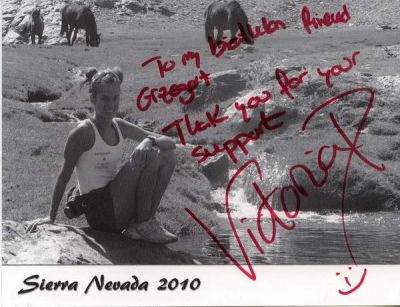 To my biathlon friend
Grzegorz
Thank you for your
support
Victoria P
:)
Sierra Nevada 2010